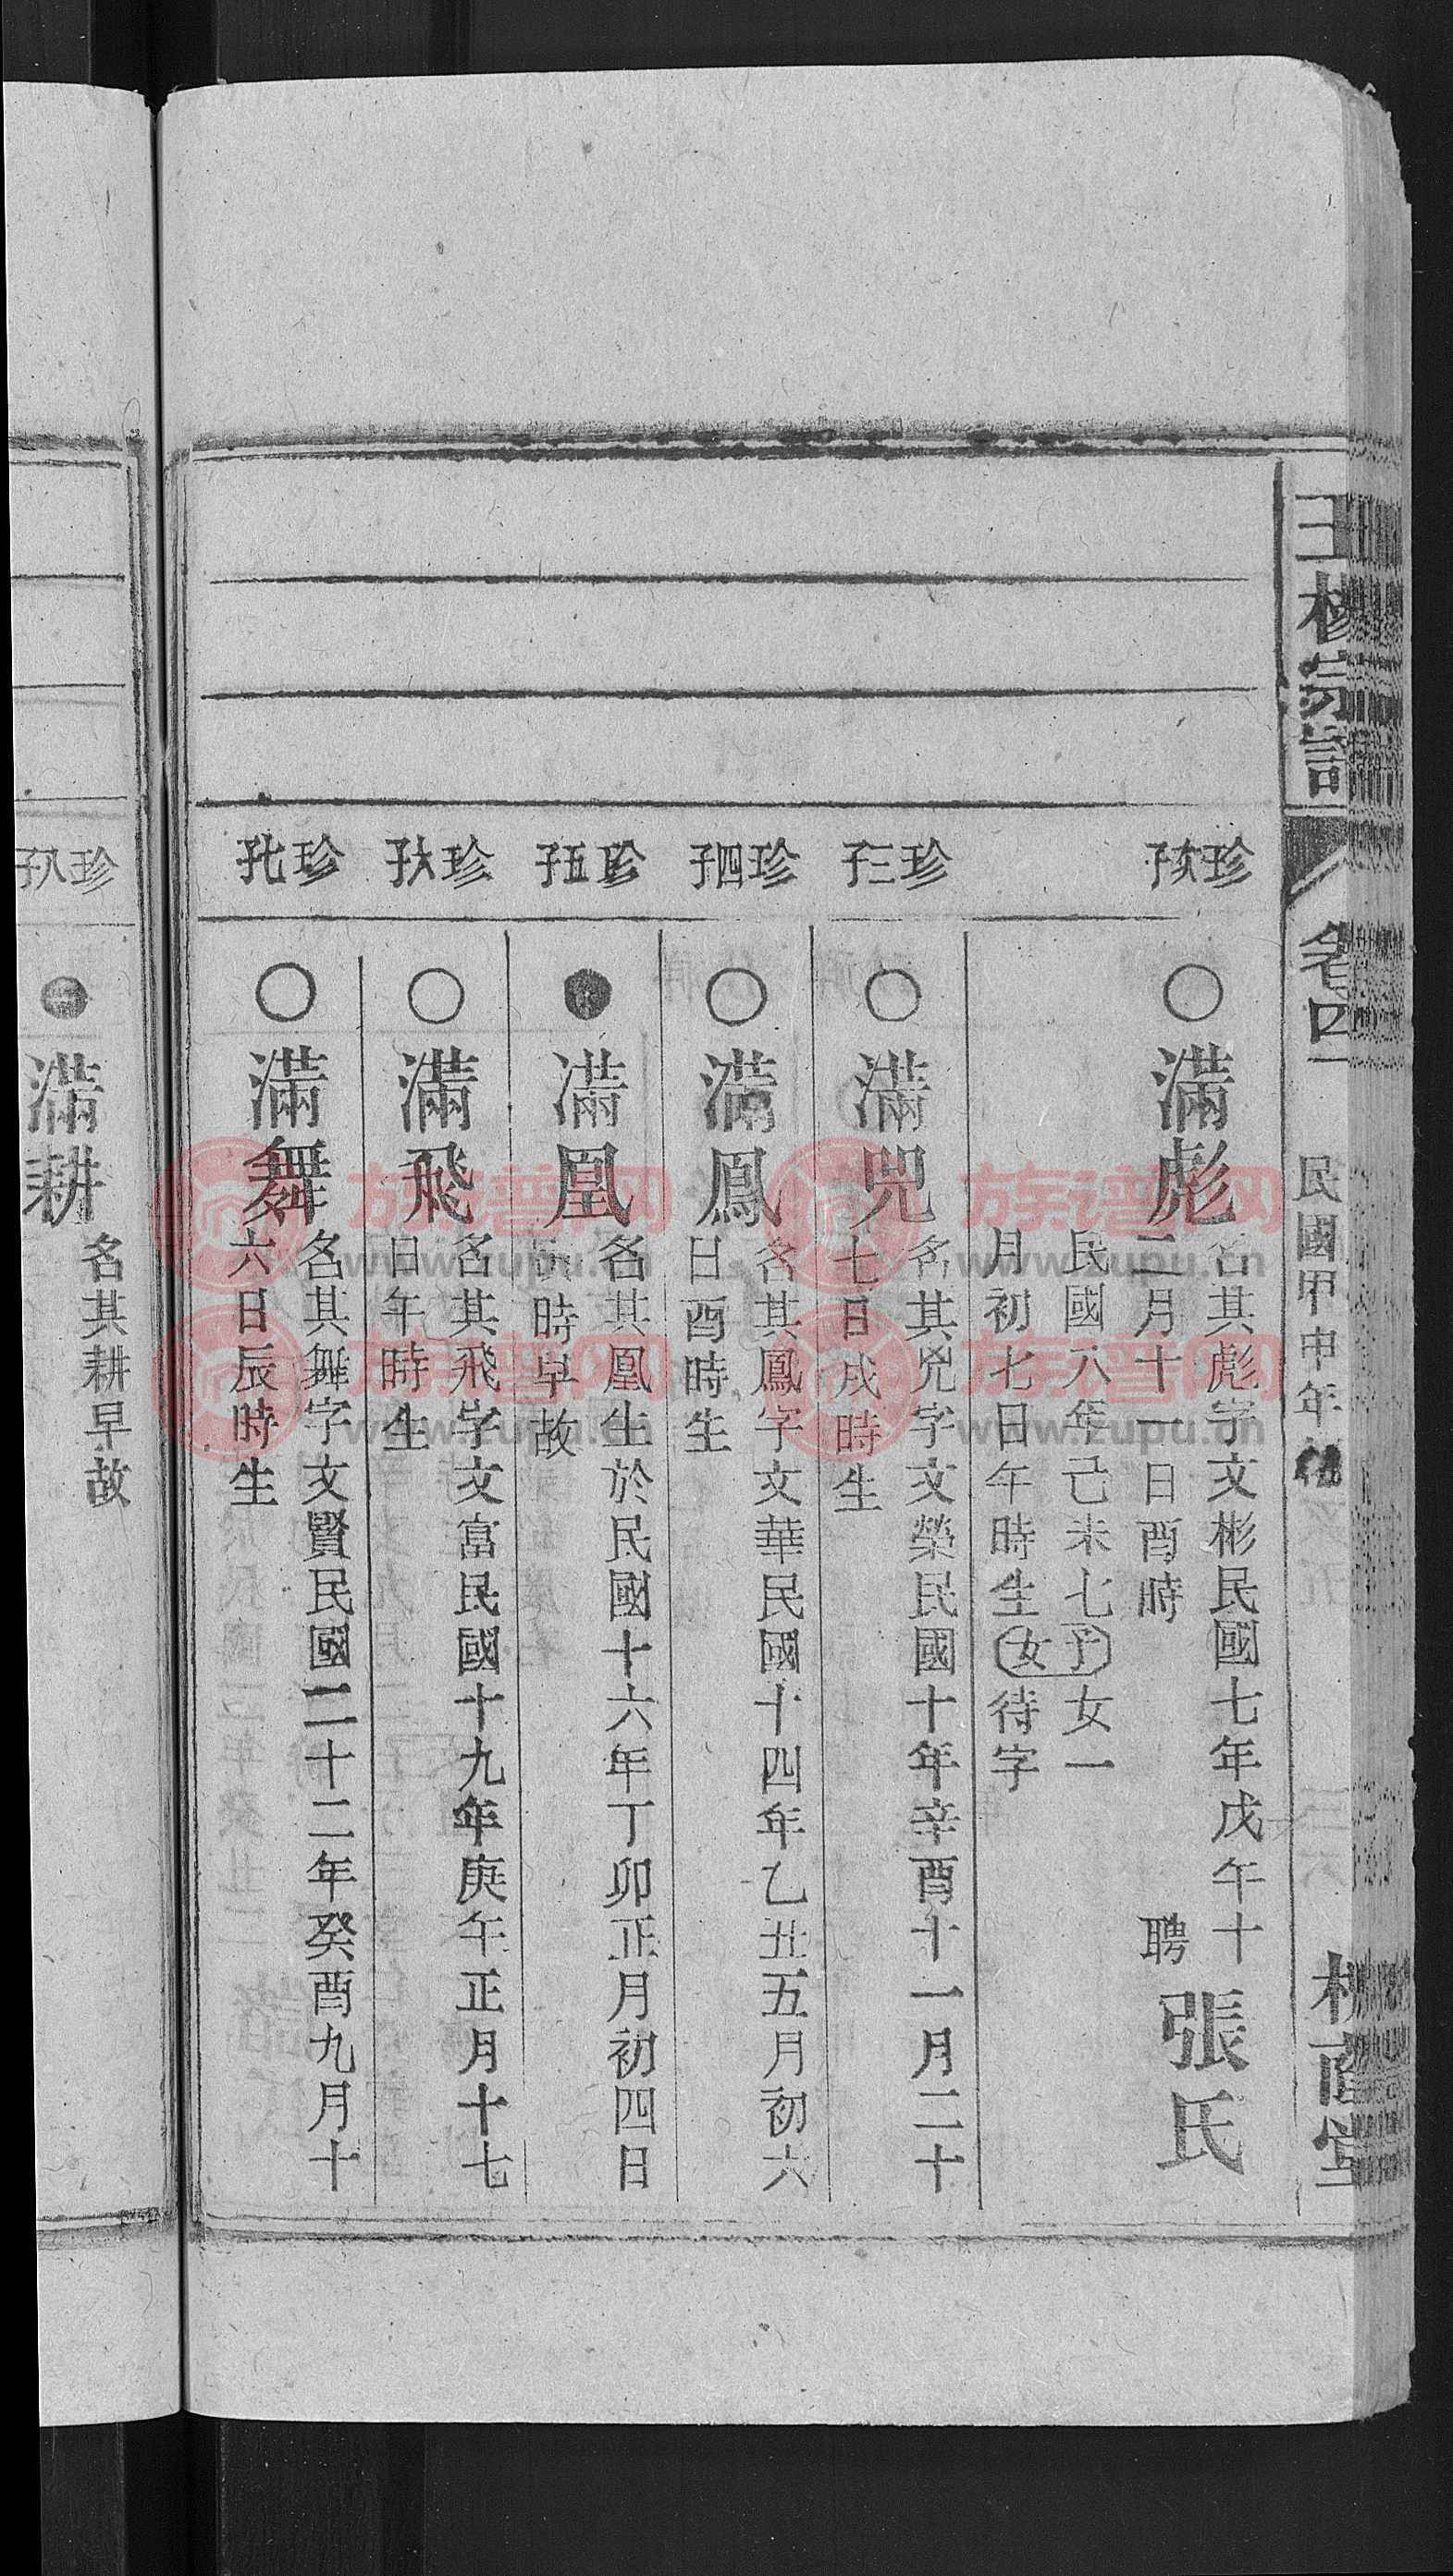 王楊宗譜
卷四
民國甲申年
楊蔭堂
珍次子
○滿彪
名其彪字文彬民國七年戊午十
二月十一日酉時
聘張氏
民國八年己未七
月初七日午時生
子女
女一
待字
珍三子
○滿兕
名其兕字文榮民國十年辛酉十一月二十
七日戌時生
珍四子
○滿鳳
名其鳳字文華民國十四年乙丑五月初六
日酉時生
珍五子
●滿凰
名其凰生於民國十六年丁卯正月初四日
時早故
珍六子
○滿飛
名其飛字文富民國十九年庚午正月十七
日午時生
珍七子
○滿舞
名其舞字文賢民國二十二年癸酉九月十
六日辰時生
珍八子
●滿耕
名其耕早故
族谱网
www.zupu.cn
族谱网
www.zupu.cn
族谱网
www.zupu.cn
族谱网
www.zupu.cn